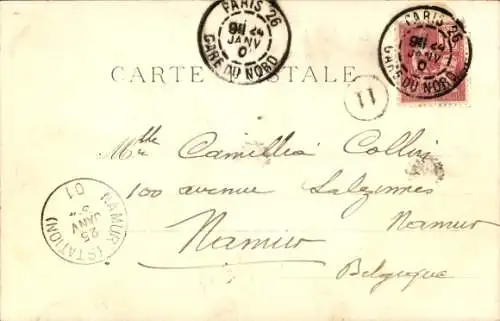 PARIS 26
24
JANV
GARE DU NORD
PARIS 26
24
JANV
GARE DU NORD
CARTE POSTALE
11
Mlle Camillia Collin
100 avenue Salzinnes
Namur
Namur
Belgique
NAMUR (STATION)
25
JANV
01